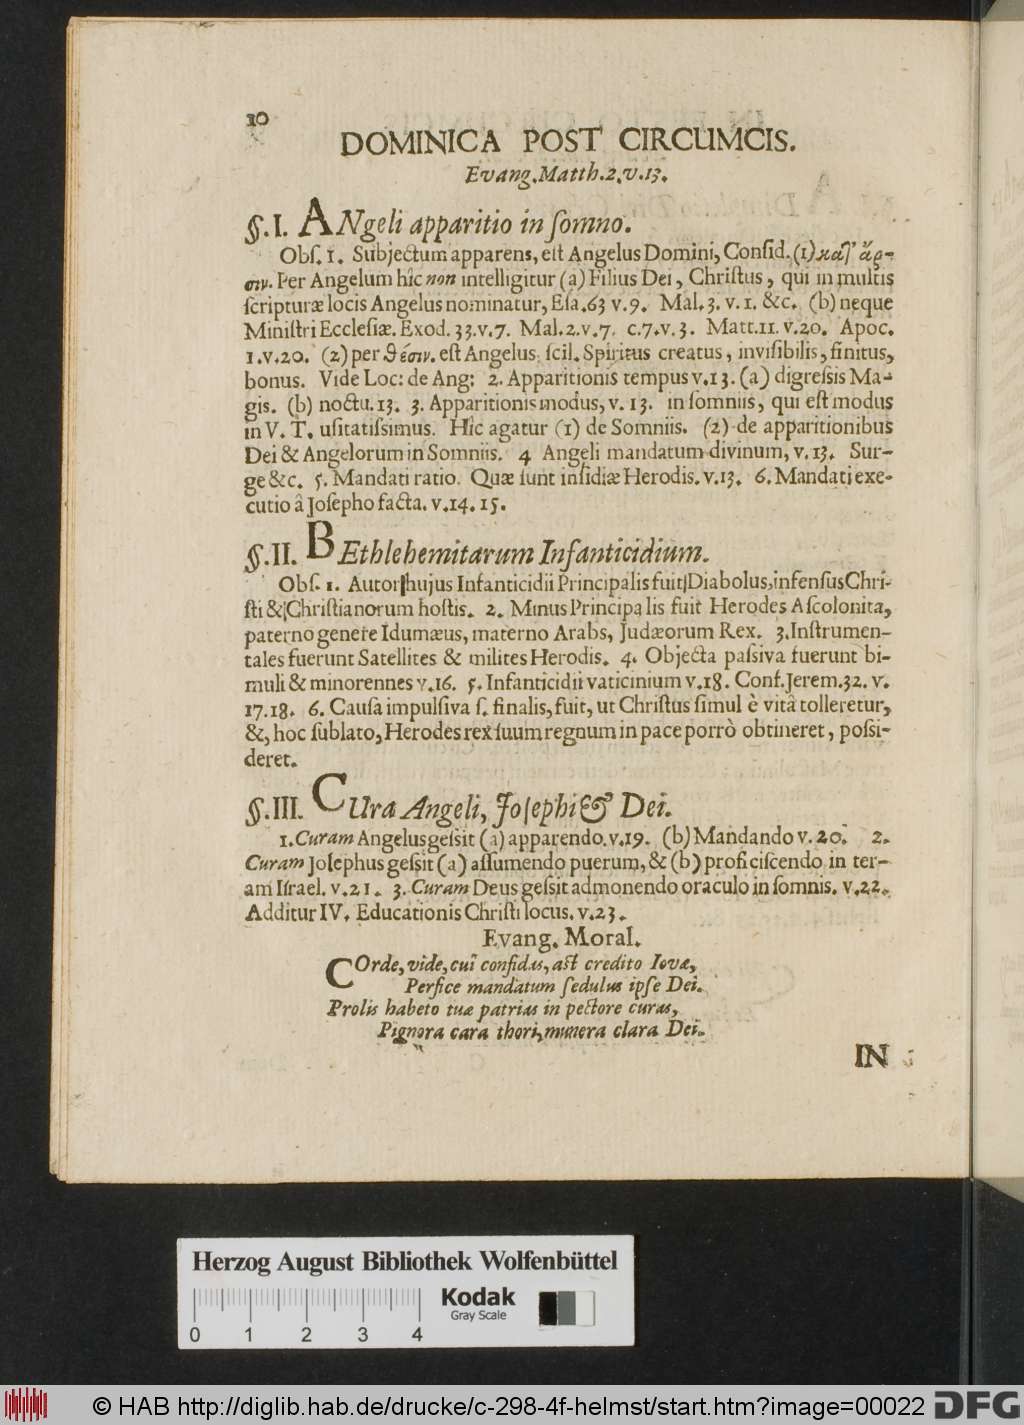 10
DOMINICA POST CIRCUMCIS.
Evang. Matth. 2. v. 13.
§. I. ANgeli apparitio in ſomno.
Obſ. 1. Subjectum apparens, eſt Angelus Domini, Conſid. (1) κατ' ἄρ-
σιν. Per Angelum hîc non intelligitur (a) Filius Dei, Chriſtus, qui in multis
ſcripturæ locis Angelus nominatur, Eſa. 63 v. 9. Mal. 3. v. 1. &c. (b) neque
Miniſtri Eccleſiæ. Exod. 33. v. 7. Mal. 2. v. 7. c. 7. v. 3. Matt. 11. v. 20. Apoc.
1. v. 20. (2) per θέσιν. eſt Angelus ſcil. Spiritus creatus, inviſibilis, finitus,
bonus. Vide Loc: de Ang: 2. Apparitionis tempus v. 13. (a) digreſsis Ma-
gis. (b) noctu. 13. 3. Apparitionis modus, v. 13. in ſomniis, qui eſt modus
in V. T. uſitatiſsimus. Hîc agatur (1) de Somniis. (2) de apparitionibus
Dei & Angelorum in Somniis. 4 Angeli mandatum divinum, v. 13. Sur-
ge &c. 5. Mandati ratio. Quæ ſunt inſidiæ Herodis. v. 13. 6. Mandati exe-
cutio â Joſepho facta. v. 14. 15.
§. II. BEthlehemitarum Infanticidium.
Obſ. 1. Autor hujus Infanticidii Principalis fuit Diabolus, infenſus Chri-
ſti & Chriſtianorum hoſtis. 2. Minus Principalis fuit Herodes Aſcolonita,
paterno genere Idumæus, materno Arabs, Judæorum Rex. 3. Inſtrumen-
tales fuerunt Satellites & milites Herodis. 4. Objecta paſsiva fuerunt bi-
muli & minorennes v. 16. 5. Infanticidii vaticinium v. 18. Conf. Jerem. 32. v.
17. 18. 6. Cauſa impulſiva ſ. finalis, fuit, ut Chriſtus ſimul è vitâ tolleretur,
&, hoc ſublato, Herodes rex ſuum regnum in pace porrò obtineret, poſsi-
deret.
§. III. CUra Angeli, Joſephi & Dei.
1. Curam Angelus geſsit (a) apparendo. v. 19. (b) Mandando v. 20. 2.
Curam Joſephus geſsit (a) aſſumendo puerum, & (b) proficiſcendo in ter-
am Iſrael. v. 21. 3. Curam Deus geſsit admonendo oraculo in ſomnis. v. 22.
Additur IV. Educationis Chriſti locus. v. 23.
Evang. Moral.
COrde, vide, cui confidas, aſt credito Iovæ,
Perfice mandatum ſedulus ipſe Dei.
Prolis habeto tuæ patrias in pectore curas,
Pignora cara thori, munera clara Dei.
IN
Herzog August Bibliothek Wolfenbüttel
Kodak
Gray Scale
0 1 2 3 4
© HAB http://diglib.hab.de/drucke/c-298-4f-helmst/start.htm?image=00022 DFG